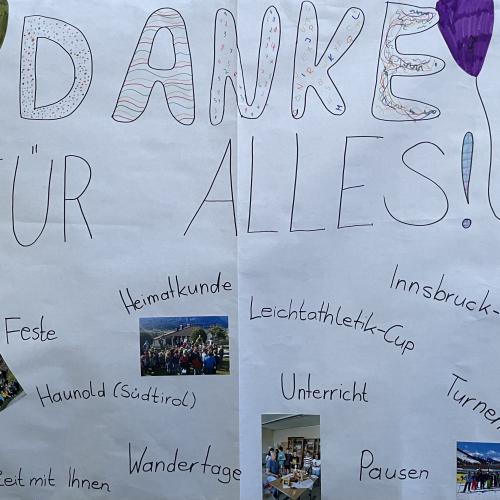 DANKE
FÜR ALLES!
Heimatkunde
Innsbruck-
Leichtathletik-Cup
Feste
Haunold (Südtirol)
Unterricht
Turnen
Wandertage
Pausen
Zeit mit Ihnen